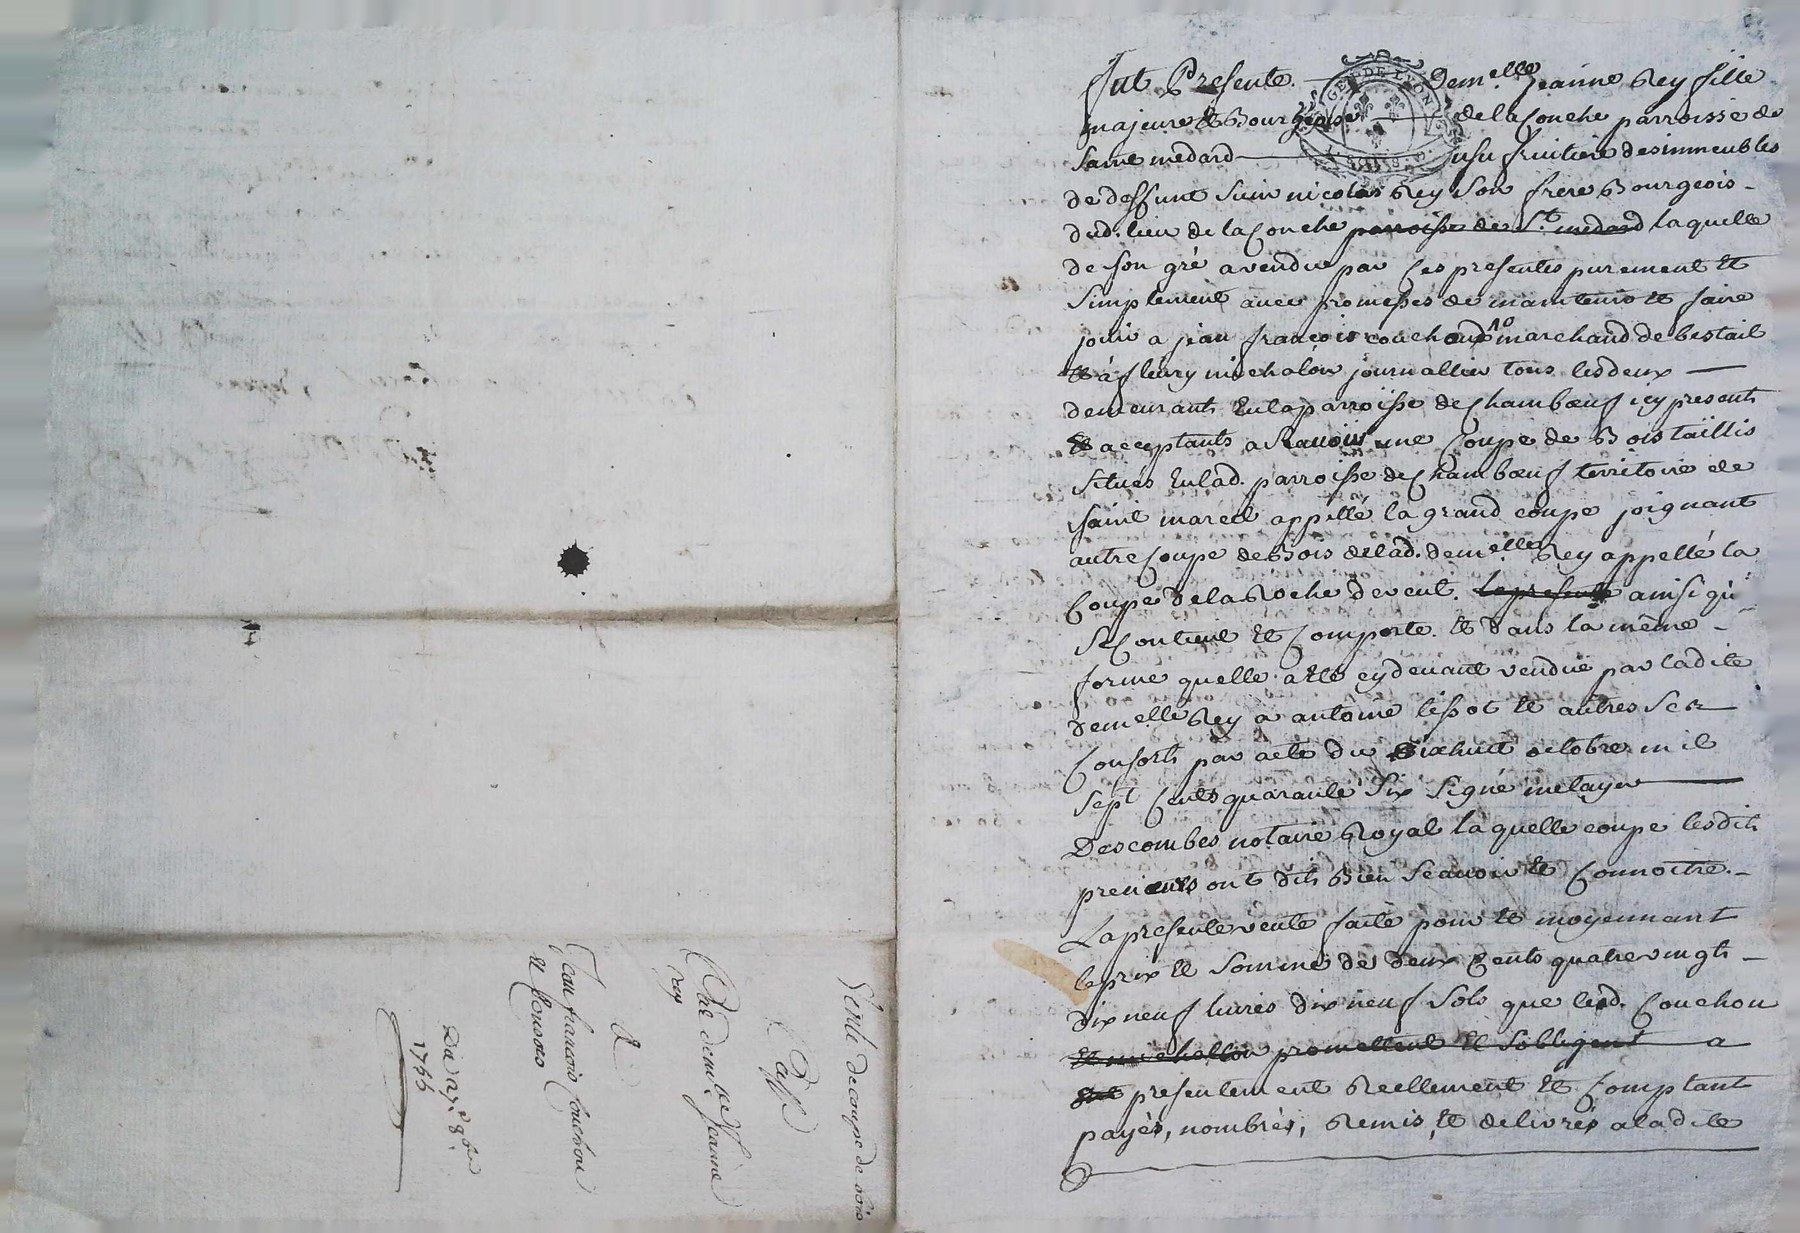 Fut Presente Dem.elle Jeanne Rey fille
majeure et Bourgeoise de la Conche parroisse de
Saint medard usufruitiere des immeubles
de deffunt Sieur nicolas Rey son frere Bourgeois
dud. lieu de la Conche parroisse de St. medard laquelle
de son gré a vendu par ces presentes purement et
simplement avec promesses de maintenir et faire
jouir a jean françois couchoud marchand de bestail
et à fleury michalon journallier tous les deux
demeurants en la parroisse de Chambœuf icy presents
et acceptants a scauoir une Coupe de Bois taillis
situés en lad. parroisse de Chambœuf territoire de
saint marcel appellé la grand coupe joignant
autre Coupe de Bois de lad. demelle Rey appellé la
Coupe de la Roche de vent. le present ainsi qu'
se Contient et Comporte. et dans la même
forme quelle a ete cy devant vendue par ladite
demelle Rey a antoine lissot et autres ses
Consorts par acte du dixhuit octobre mil
sept Cents quarante Six signé metayer
Descombes notaire Royal laquelle coupe lesdits
preneurs ont dits Bien scauoir et Connoitre.
La presente vente faite pour et moyennant
le prix et Somme de deux Cents quatre vingts
dix neuf livres dix neuf Sols que led. Couchon
et michallon promettent et sobligent a
presentement Reellement et Comptant
payés, nombrés, Remis, et delivrés a ladite
Vente de coupe de bois
Passé
Par demlle Jeanne
rey
A
Jean francois Couchou
et Consors
Du 27e 8bre
1766